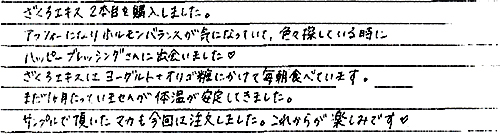 ざくろエキス2本目を購入しました。
アラフォーになりホルモンバランスが気になっていて、色々探している時に
ハッピーブレッシングさんに出会いました♡
ざくろエキスはヨーグルト+オリゴ糖にかけて毎朝食べています。
まだ1ヶ月たっていませんが体温が安定してきました。
サンプルで頂いたマカも今回は注文しました。これからが楽しみです♡